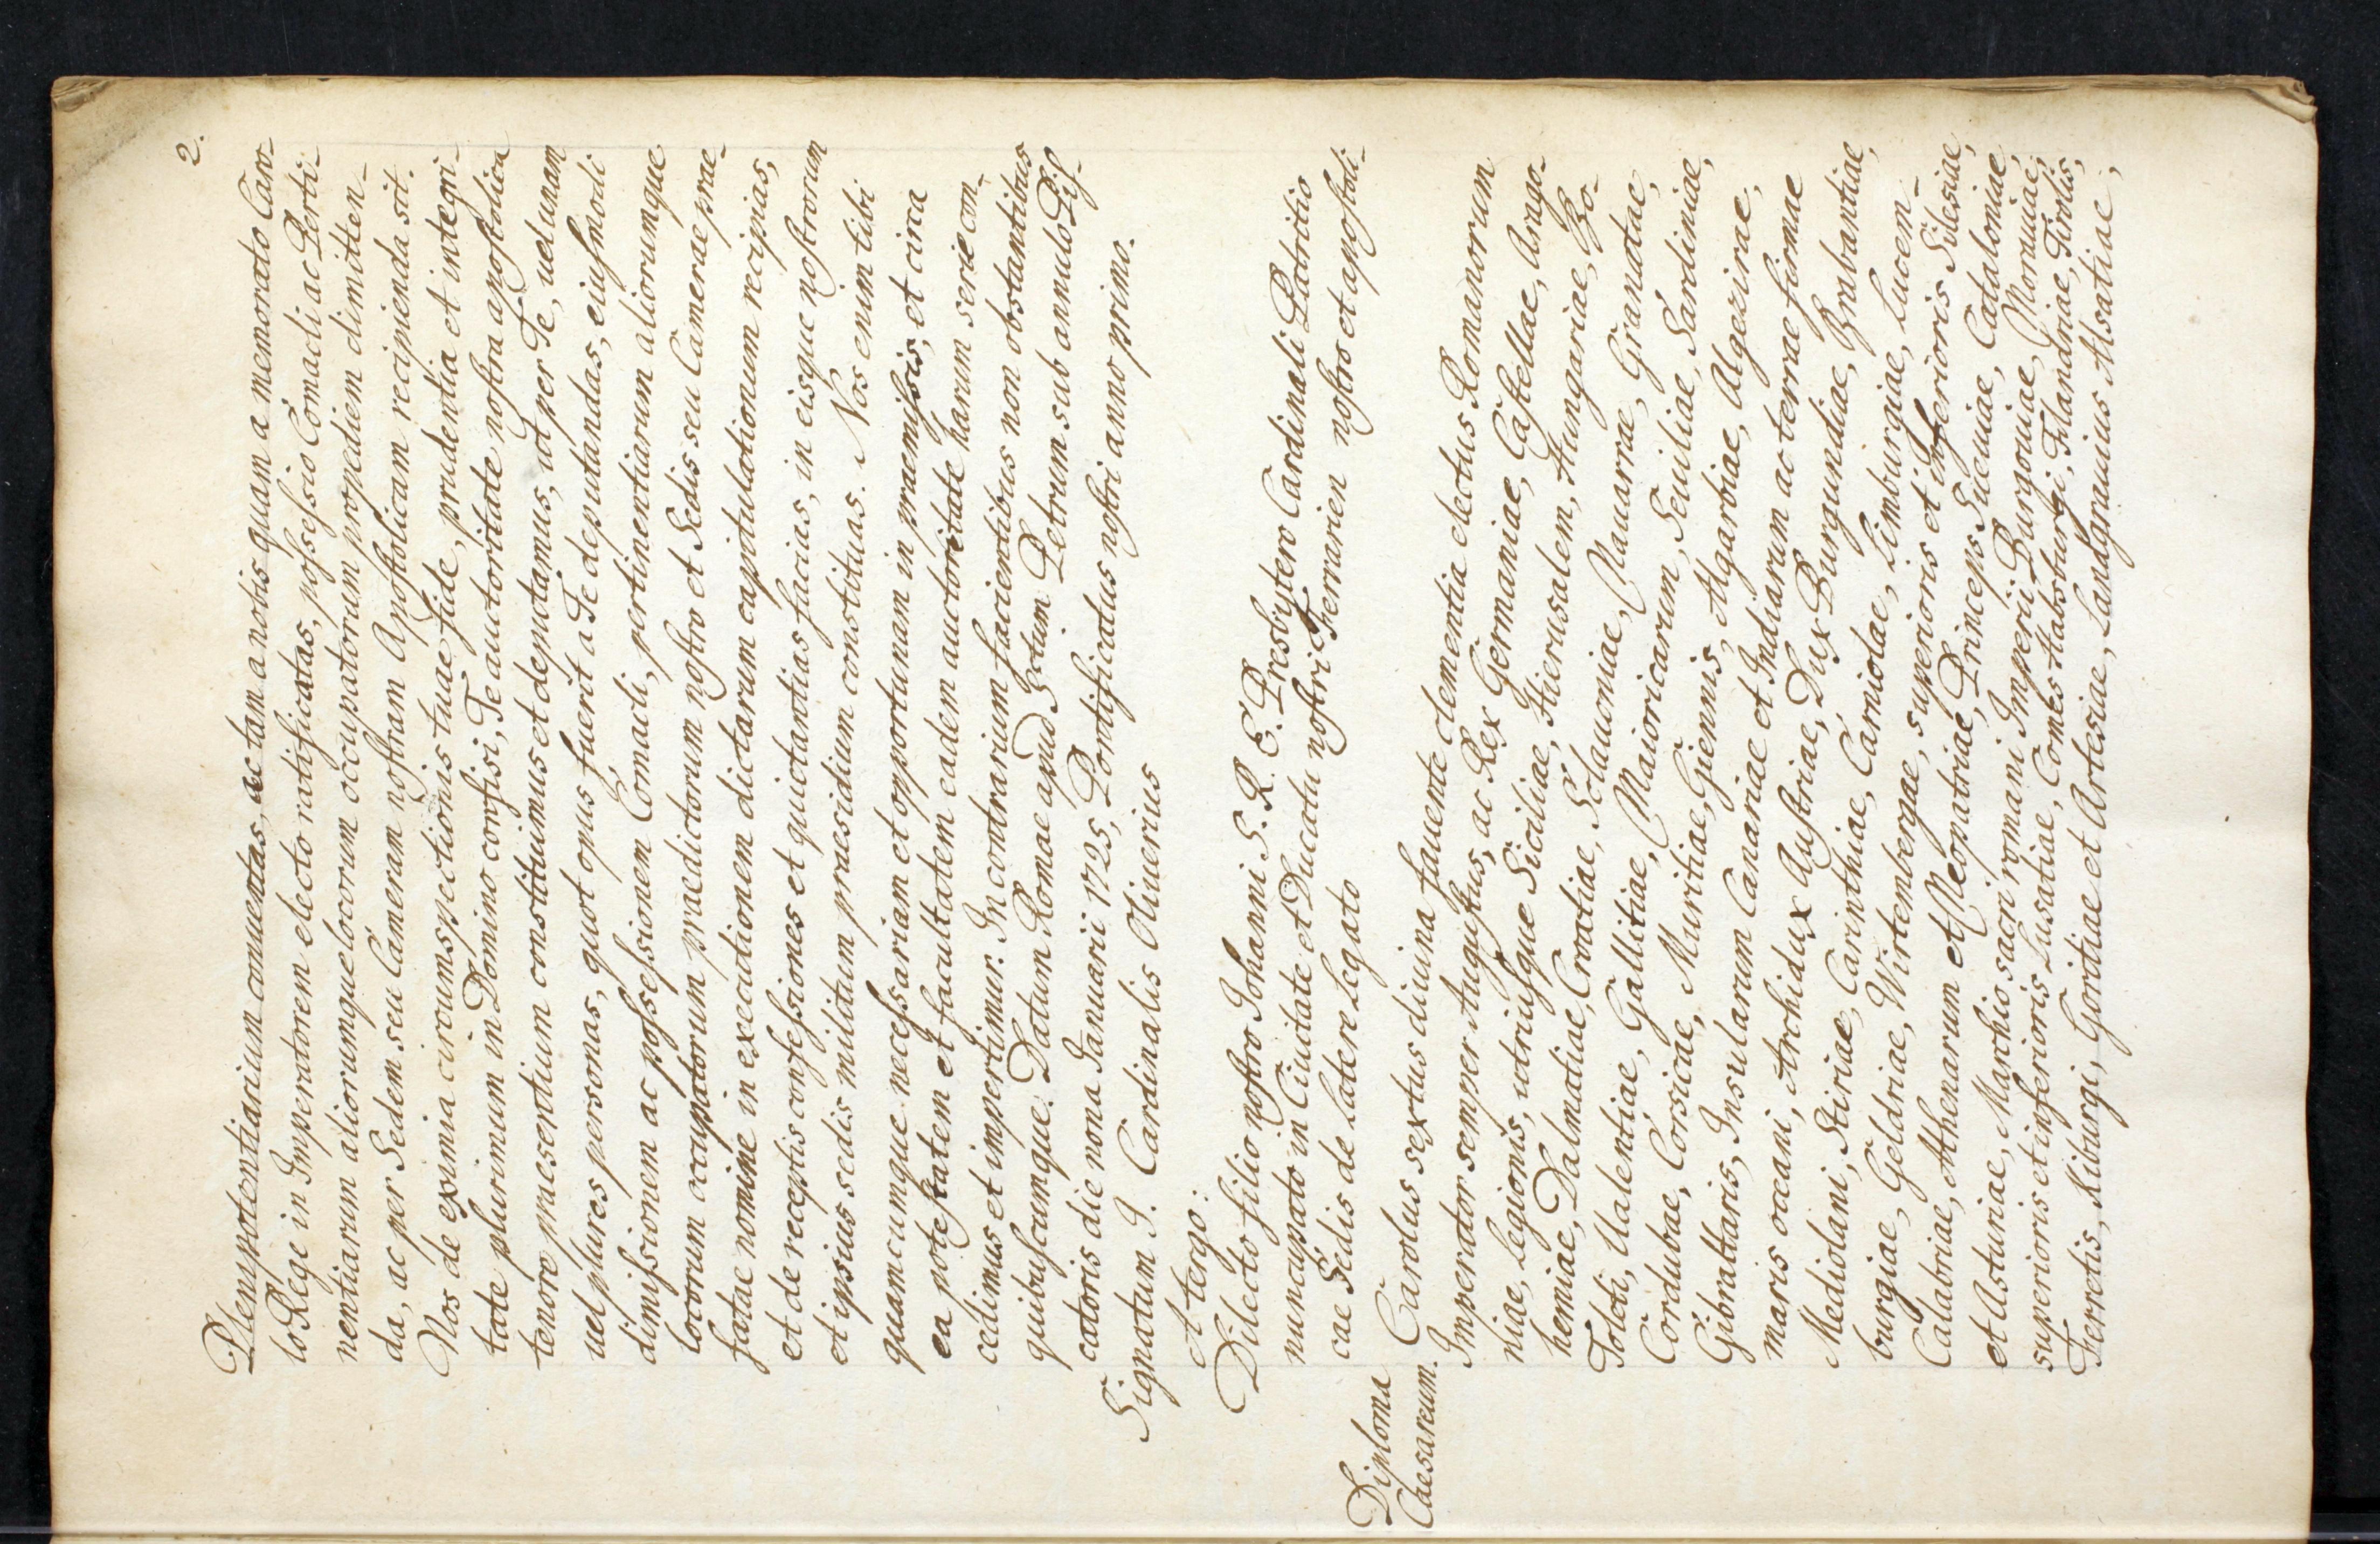 2.
Plenipotentiarium conuentas, ac tam a nobis quam a memorato Caro-
lo Rege in Imperatorem electo ratificatas, possessio Comacli ac Perti-
nentiarum aliorumque locorum occupatorum propediem dimitten-
da, ac per Sedem seu Cameram nostram Apostolicam recipienda sit.
Nos de eximia circumspectionis tuae fide, prudentia et integri-
tate plurimum in Domino confisi, Te auctoritate nostra apostolica
tenore praesentium constituimus et deputamus, ut per Te, uel unam
uel plures personas, quot opus fuerit a Te deputandas, eiusmodi
dimissionem ac possessionem Comacli, pertinentiarum aliorumque
locorum occupatorum praedictorum nostro et Sedis seu Camerae prae-
fatae nomine in executionem dictarum capitulationum recipias,
et de receptis confessiones et quictantias facias, in eisque nostrorum
et ipsius sedis militum praesidium constituas. Nos enim tibi
quamcumque necessariam et opportunam in praemissis, et circa
ea potestatem et facultatem eadem auctoritate harum serie con-
cedimus et impertimur. In contrarium facientibus non obstantibus
quibuscumque. Datum Romae apud Sctum Petrum sub annulo Pis-
catoris die nona Januarii 1725, Pontificatus nostri anno primo.
Signatum J. Cardinalis Oliuerius
A tergo:
Dilecto filio nostro Johanni S. R. E. Presbytero Cardinali Patritio
nuncupato in Ciuitate et Ducatu nostri Ferrarien nostro et apostoli-
cae Sedis de Latere Legato
Diploma
Caesareum.
Carolus sextus diuina fauente clementia electus Romanorum
Imperator semper Augustus, ac Rex Germaniae, Castellae, Arago-
niae, Legionis, utriusque Siciliae, Hierusalem, Hungariae, Bo-
hemiae, Dalmatiae, Croatiae, Sclauoniae, Nauarrae, Granatae,
Toleti, Ualentiae, Gallitiae, Maioricarum, Seuiliae, Sardiniae,
Cordubae, Corsicae, Muritiae, Giennis, Algarbiae, Algezirae,
Gibraltaris, Insularum Canariae et Indiarum ac terrae firmae
maris oceani, Archidux Austriae, Dux Burgundiae, Brabantiae,
Mediolani, Stiriae, Carinthiae, Carniolae, Limburgiae, Lucem-
burgiae, Geldriae, Wirtembergae, superioris et inferioris Silesiae,
Calabriae, Athenarum et Neopatriae, Princeps Sueuiae, Cataloniae,
et Asturiae, Marchio sacri romani Imperii Burgouiae, Morauiae,
superioris et inferioris Lusatiae, Comes Habsburgi, Flandriae, Tirolis,
Ferretis, Kiburgi, Goritiae et Artesiae, Landgrauius Alsatiae,